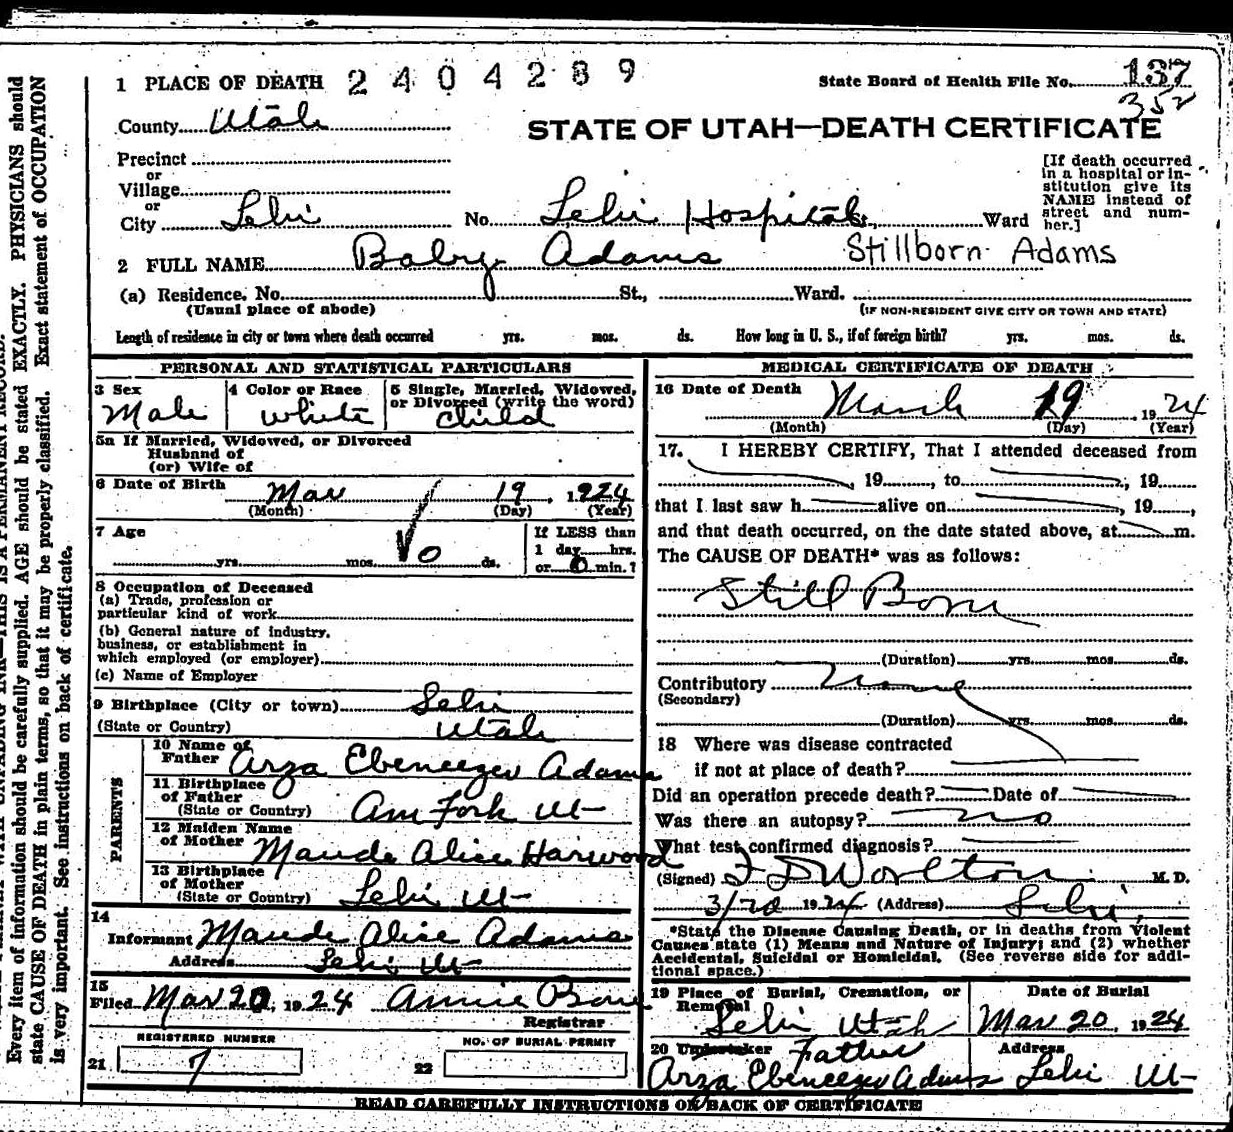 1 PLACE OF DEATH 2404289
State Board of Health File No. 137
352
County Utah
STATE OF UTAH—DEATH CERTIFICATE
Precinct
or
Village
or
City Lehi No. Lehi Hospital St., Ward
[If death occurred
in a hospital or in-
stitution give its
NAME instead of
street and num-
ber.]
2 FULL NAME Baby Adams Stillborn Adams
(a) Residence. No. St., Ward.
(Usual place of abode) (IF NON-RESIDENT GIVE CITY OR TOWN AND STATE)
Length of residence in city or town where death occurred yrs. mos. ds. How long in U. S., if of foreign birth? yrs. mos. ds.
PERSONAL AND STATISTICAL PARTICULARS
3 Sex
Male
4 Color or Race
White
5 Single, Married, Widowed,
or Divorced (write the word)
Child
5a If Married, Widowed, or Divorced
Husband of
(or) Wife of
6 Date of Birth Mar 19, 1924
(Month) (Day) (Year)
7 Age
yrs. mos. 0 ds.
If LESS than
1 day hrs.
or 0 min.?
8 Occupation of Deceased
(a) Trade, profession or
particular kind of work
(b) General nature of industry,
business, or establishment in
which employed (or employer)
(c) Name of Employer
9 Birthplace (City or town) Lehi
(State or Country) Utah
PARENTS
10 Name of
Father Arza Ebeneezer Adams
11 Birthplace
of Father
(State or Country) Am Fork Ut
12 Maiden Name
of Mother Maude Alice Harwood
13 Birthplace
of Mother
(State or Country) Lehi Ut
14
Informant Maude Alice Adams
Address Lehi Ut
15
Filed Mar 20, 1924 Annie Bone
Registrar
REGISTERED NUMBER
21 7
NO. OF BURIAL PERMIT
22
MEDICAL CERTIFICATE OF DEATH
16 Date of Death March 19, 1924
(Month) (Day) (Year)
17. I HEREBY CERTIFY, That I attended deceased from
, 19, to , 19
that I last saw h alive on , 19,
and that death occurred, on the date stated above, at m.
The CAUSE OF DEATH* was as follows:
Still Born
(Duration) yrs. mos. ds.
Contributory None
(Secondary)
(Duration) yrs. mos. ds.
18 Where was disease contracted
if not at place of death?
Did an operation precede death? Date of
Was there an autopsy? no
What test confirmed diagnosis?
(Signed) F D Worlton M. D.
3/20 1924 (Address) Lehi,
*State the Disease Causing Death, or in deaths from Violent
Causes state (1) Means and Nature of Injury; and (2) whether
Accidental, Suicidal or Homicidal. (See reverse side for addi-
tional space.)
19 Place of Burial, Cremation, or
Removal
Lehi Utah
Date of Burial
Mar 20, 1924
20 Undertaker Father
Arza Ebeneezer Adams
Address
Lehi Ut
READ CAREFULLY INSTRUCTIONS ON BACK OF CERTIFICATE
Every item of information should be carefully supplied. AGE should be stated EXACTLY. PHYSICIANS should
state CAUSE OF DEATH in plain terms, so that it may be properly classified. Exact statement of OCCUPATION
is very important. See instructions on back of certificate.